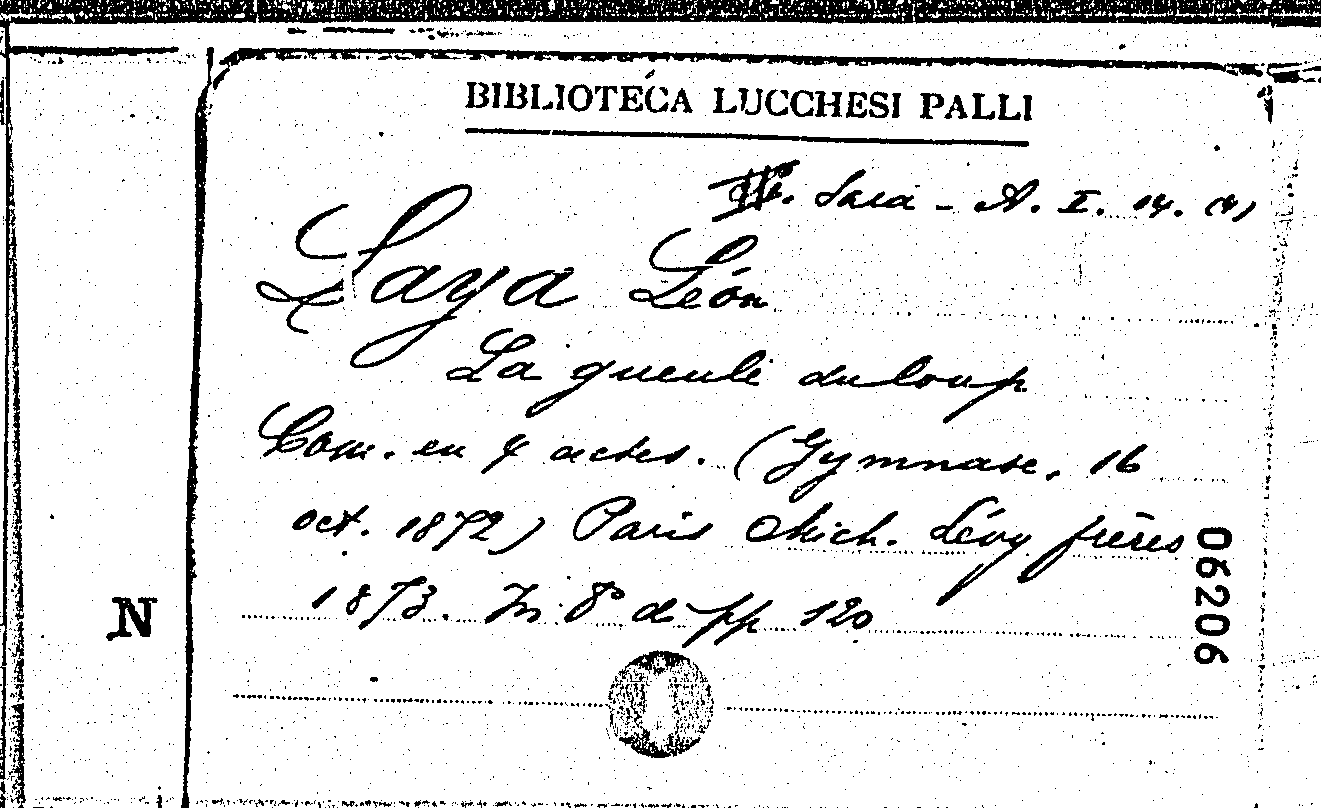 BIBLIOTECA LUCCHESI PALLI
Sala - A. I. 14. (4)
Laya Léon
La gueule du loup
Com. en 4 actes. (Gymnase, 16
oct. 1872) Paris Mich. Lévy frères
1873. In 8° di pp 120
06206
N